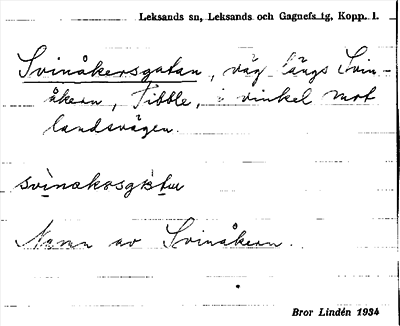 Leksands sn, Leksands och Gagnefs tg, Kopp. l.
Svinåkersgatan, väg längs Svin-
åkern, Tibble, i vinkel mot
landsvägen.
Namn av Svinåkern.
Bror Lindén 1934